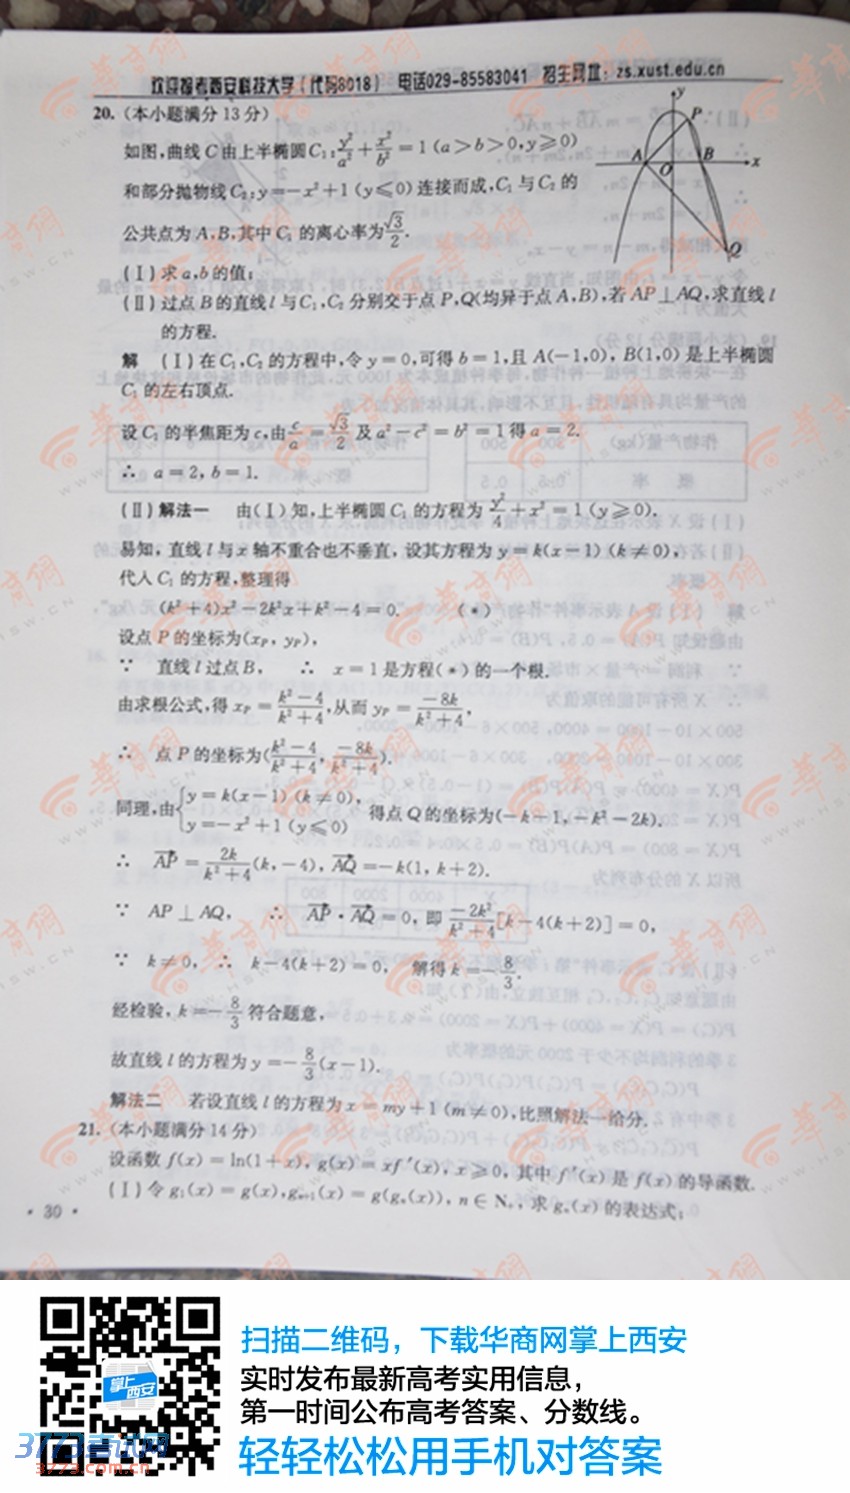 欢迎报考西安科技大学(代码8018) 电话029-85583041 招生网址:zs.xust.edu.cn
20.(本小题满分13分)
如图,曲线C由上半椭圆C₁:y²/a²+x²/b²=1(a>b>0,y≥0)
和部分抛物线C₂:y=-x²+1(y≤0)连接而成,C₁与C₂的
公共点为A,B,其中C₁的离心率为√3/2.
y
P
A
O
B
x
Q
(Ⅰ)求a,b的值;
(Ⅱ)过点B的直线l与C₁,C₂分别交于点P,Q(均异于点A,B),若AP⊥AQ,求直线l
的方程.
解 (Ⅰ)在C₁,C₂的方程中,令y=0,可得b=1,且A(-1,0),B(1,0)是上半椭圆
C₁的左右顶点.
设C₁的半焦距为c,由c/a=√3/2及a²-c²=b²=1得a=2.
∴ a=2,b=1.
(Ⅱ)解法一 由(Ⅰ)知,上半椭圆C₁的方程为y²/4+x²=1(y≥0).
易知,直线l与x轴不重合也不垂直,设其方程为y=k(x-1)(k≠0),
代入C₁的方程,整理得
(k²+4)x²-2k²x+k²-4=0. (*)
设点P的坐标为(xₚ,yₚ),
∵ 直线l过点B, ∴ x=1是方程(*)的一个根.
由求根公式,得xₚ=(k²-4)/(k²+4),从而yₚ=-8k/(k²+4),
∴ 点P的坐标为((k²-4)/(k²+4),-8k/(k²+4)).
同理,由{y=k(x-1)(k≠0), y=-x²+1(y≤0) 得点Q的坐标为(-k-1,-k²-2k).
∴ AP→=2k/(k²+4)(k,-4),AQ→=-k(1,k+2).
∵ AP⊥AQ, ∴ AP→·AQ→=0,即-2k²/(k²+4)[k-4(k+2)]=0,
∵ k≠0, ∴ k-4(k+2)=0, 解得k=-8/3.
经检验,k=-8/3符合题意,
故直线l的方程为y=-8/3(x-1).
解法二 若设直线l的方程为x=my+1(m≠0),比照解法一给分.
21.(本小题满分14分)
设函数f(x)=ln(1+x),g(x)=xf′(x),x≥0,其中f′(x)是f(x)的导函数.
(Ⅰ)令g₁(x)=g(x),gₙ₊₁(x)=g(gₙ(x)),n∈N₊,求gₙ(x)的表达式;
·30·
华商网
WWW.HSW.CN
掌上西安
扫描二维码,下载华商网掌上西安
实时发布最新高考实用信息,
第一时间公布高考答案、分数线。
轻轻松松用手机对答案
3773考试网
3773.com.cn